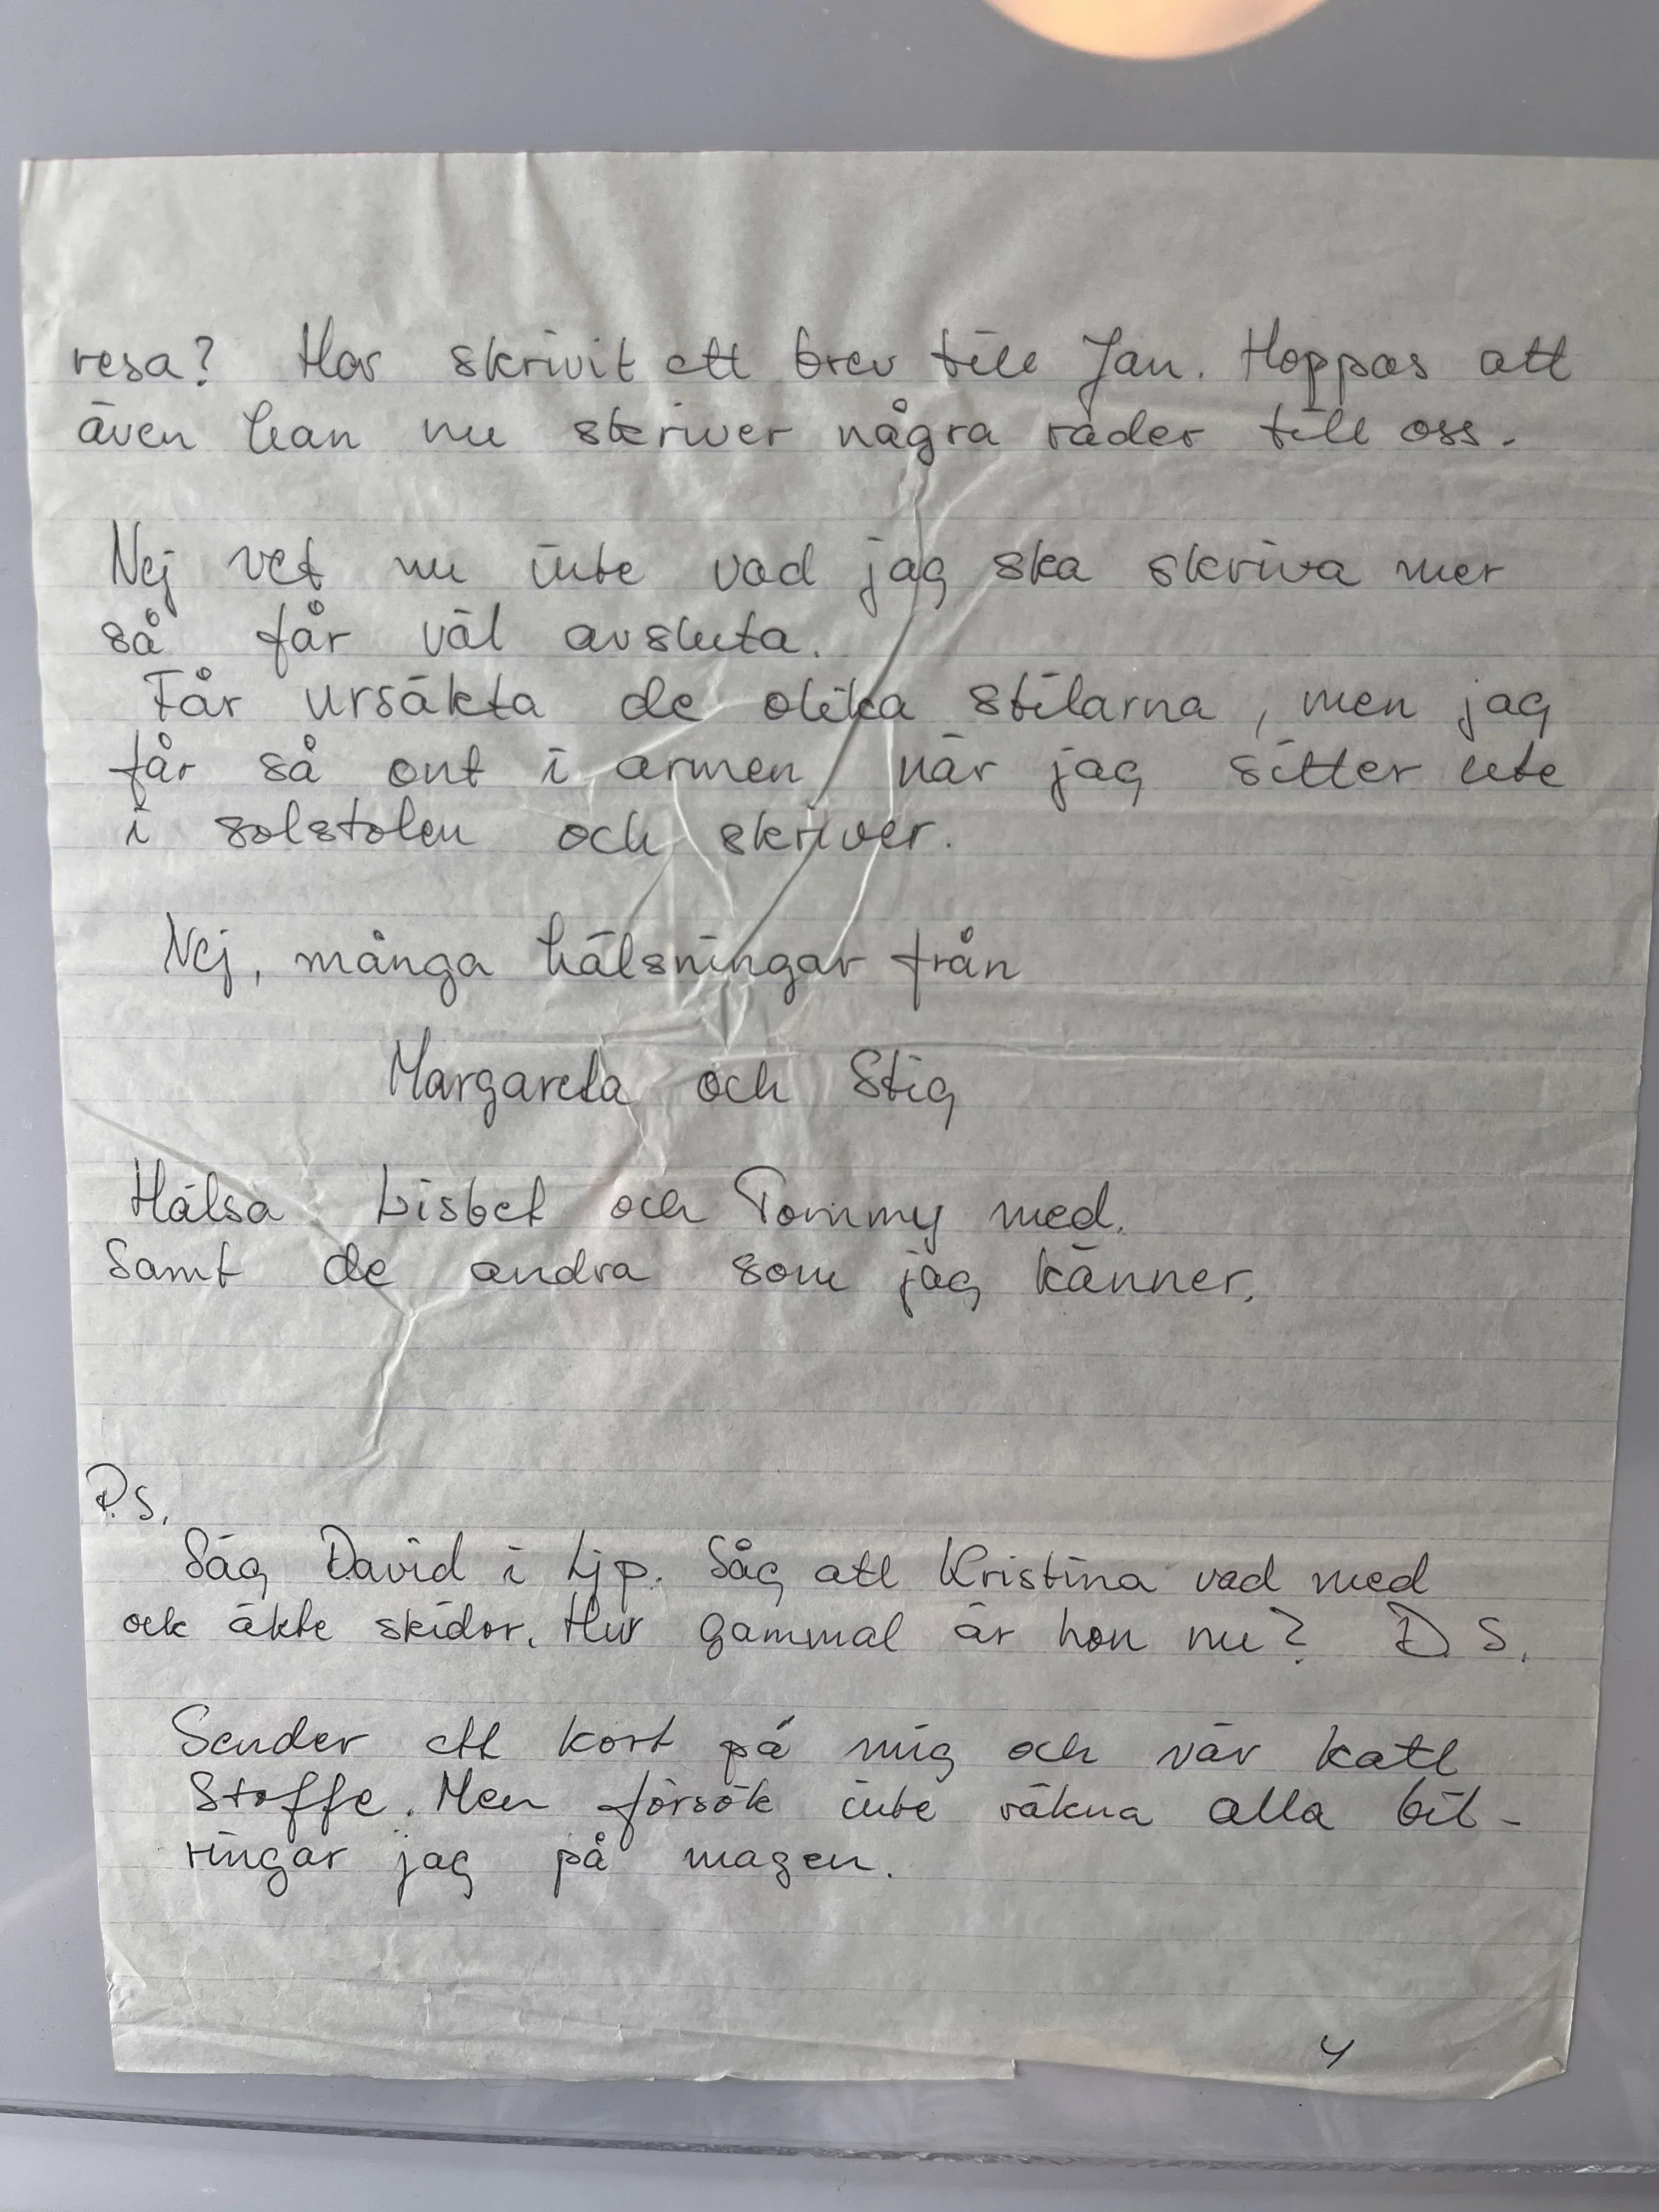 resa? Har skrivit ett brev till Jan. Hoppas att
även han nu skriver några rader till oss.
Nej vet nu inte vad jag ska skriva mer
så får väl avsluta.
Får ursäkta de olika stilarna, men jag
får så ont i armen när jag sitter ute
i solstolen och skriver.
Nej, många hälsningar från
Margareta och Stig
Hälsa Lisbet och Tommy med.
Samt de andra som jag känner.
P.S.
Såg David i Ljp. Såg att Kristina vad med
ock åkte skidor. Hur gammal är hon nu? D S.
Sender ett kort på mig och vår katt
Stoffe. Men försök inte räkna alla bil-
ringar jag på magen.
4